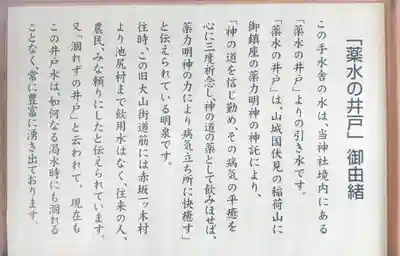 「薬水の井戸」御由緒
この手水舎の水は、当神社境内にある
「薬水の井戸」よりの引き水です。
「薬水の井戸」は、山城国伏見の稲荷山に
御鎮座の薬力明神の神託により、
「神の道を信じ勤め、その病気の平癒を
心に三度祈念し神の道の薬として飲みほせば、
薬力明神の力により病気立ち所に快癒す」
と伝えられている明泉です。
往時、この旧大山街道筋には赤坂一ッ木村
より池尻村まで飲用水はなく、往来の人、
農民、みな頼りにしたと伝えられています。
又「涸れずの井戸」と云われて、現在も
この井戸水は、如何なる渇水時にも涸れる
ことなく、常に豊富に湧き出ております。